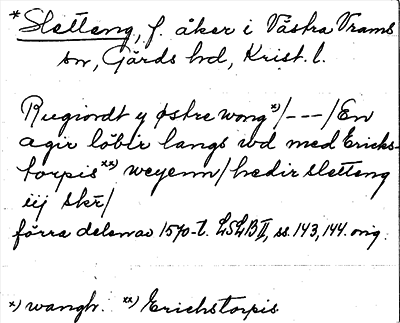 *Sletteng, f. åker i Västra Vrams
sn, Gärds hd, Krist. l.
Rugiordt y østre wong*)/---/En
agir löbir langs wd med Ericks-
torpis**) weyenn/hedir sletteng
iij skr/
förra delen av 1570-t. LSLB II, ss. 143, 144. orig.
*) wangh. **) Erichstorpis